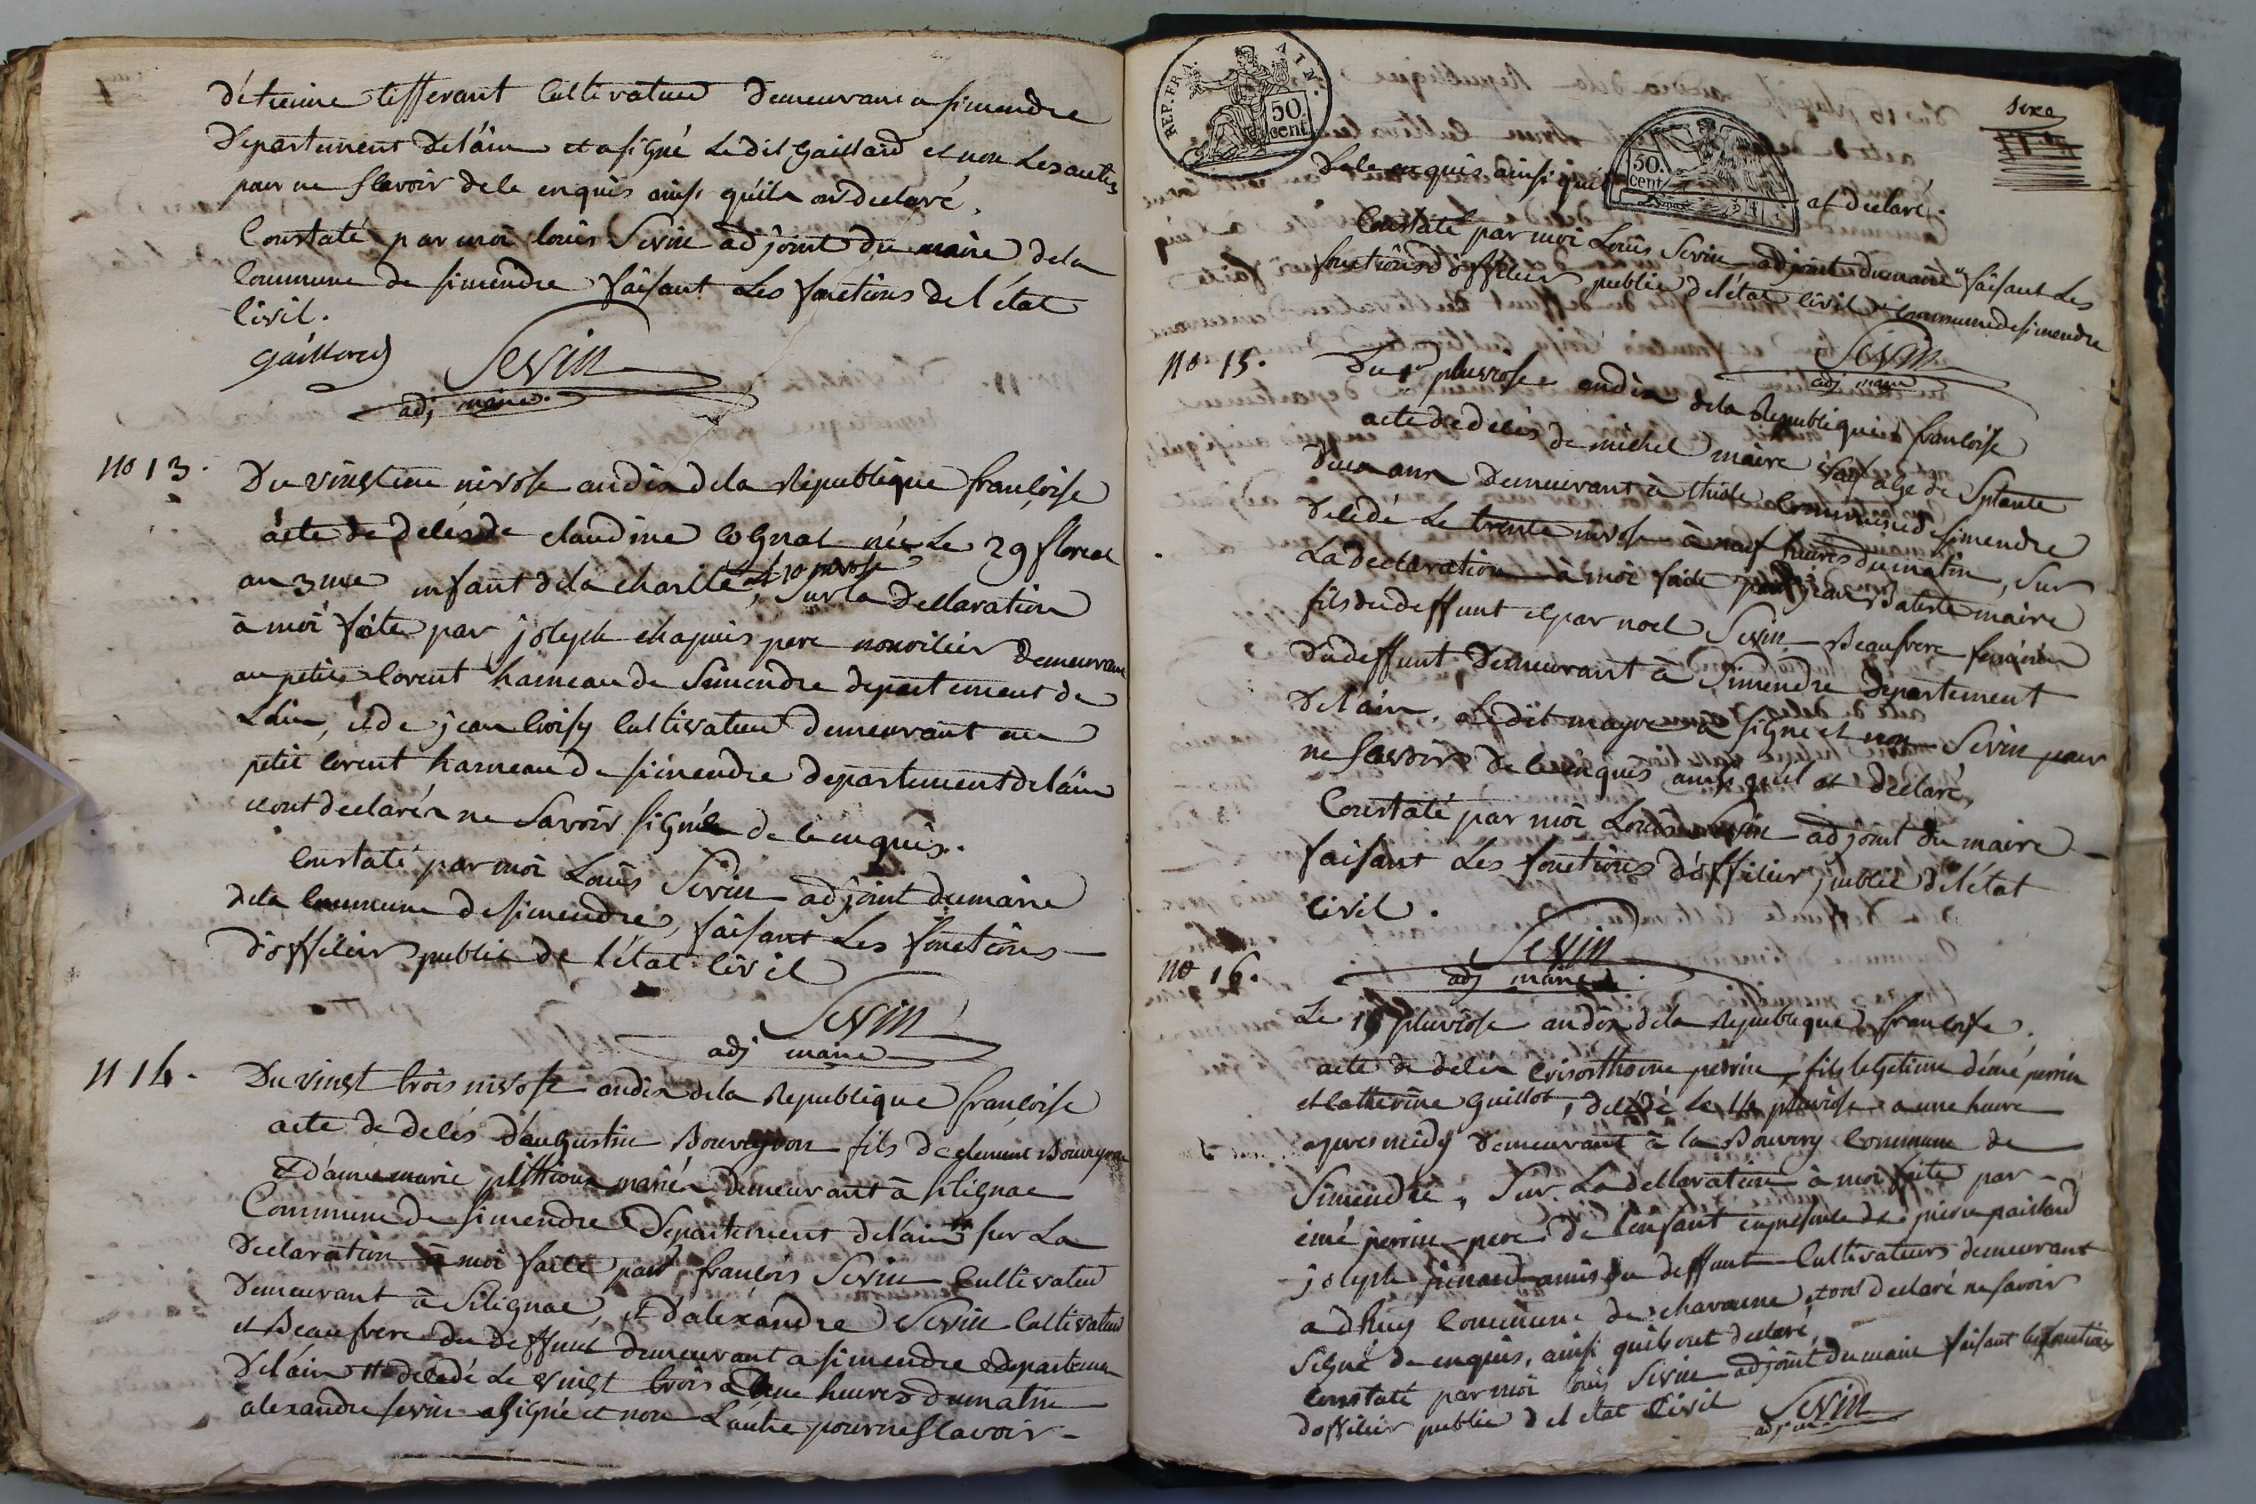 d'étienne tifferant Cultivateur demeurant a simendre
Departement Delâin et a signé Le dit Gaillard et non Les autres
pour ne sçavoir de le enquis ainsi qu'ils ont declaré.
Constaté par moi Loüis Sevin adjoint du maire dela
Commune de simendre faisant Les fonctions de l'état
Civil.
gaillard Sevin
adj maire.
no 13.
Du vingt un nivose an dix dela Republique françoise
acte de decés de claudine Cognat née Le 29 floreal
an 3me enfant dela charité, le 10 nivose, Sur la declaration
à moi faite par joseph chapuis pere nouricier demeurant
au petit Corent hameau de Simendre departement de
Lain, et de jean Croisy Cultivateur demeurant au
petit Corent hameau de simendre departement delâin
iont declarés ne Savoir signé de le enquis.
Constaté par moi Loüis Sevin adjoint du maire
dela Commune de simendre, faisant Les fonctions
d'officier public de l'état civil
Sevin
adj maire
n 14.
Du vingt trois nivose an dix dela Republique françoise
acte de decés d'augustin Bouveyron fils de clement Bouveyron
et d'anne marie pitthion mariés demeurant à silignac
Commune de simendre Departement delâin sur La
Declaration à moi faite par françois Sevin Cultivateur
Demeurant à Silignac, et d'alexandre Sevin Cultivateur
et Beaufrere du deffunt demeurant a simendre departement
Delâin decedé Le vingt trois a heures du matin
alexandre sevin a signé et non L'autre pour ne sçavoir
REP. FRA. AIN.
50
cent
50.
cent
sixe
de le enquis ainsi quil at declaré.
Constaté par moi Loüis Sevin adjoint du maire faisant Les
fonctions d'officier public de létat Civil Commune de simendre
Sevin
adj maire
no. 15.
Du 1er pluviose an dix dela Republique françoise
acte de decés de michel maire agé de Sptante
deux ans demeurant à thiole Commune de simendre
decedé Le trente nivose à neuf heures du matin, Sur
La declaration à moi faite par jean Batiste maire
fils du deffunt et par noel Sevin Beaufrere
du deffunt demeurant à Simendre Departement
Delâin. Ledit mayre a signé et non Sevin pour
ne Savoir de le enquis ainsi quil at declaré,
Constaté par moi Loüis Sevin adjoint du maire
faisant Les fonctions d'officier public de l'état
civil.
Sevin
adj maire
no 16.
Le 15 pluviose an dix dela Republique françoise.
acte de decés Crisosthome perrin, fils legitime d'émé perrin
et catherine Guillot, decédé le 14 pluviose a une heure
apres midy demeurant à la Bouvery Commune de
Simendre, Sur La declaration à moi faite par
émé perrin pere de l'enfant en presence de pierre paillard
joseph pinard amis du deffunt Cultivateurs demeurant
a dhuy Commune de chavanne, et ont declaré ne savoir
signé de enquis, ainsi quils ont declaré,
Constaté par moi Loüis Sevin adjoint du maire faisant les fonctions
d'officier public de l'état Civil Sevin
adj m